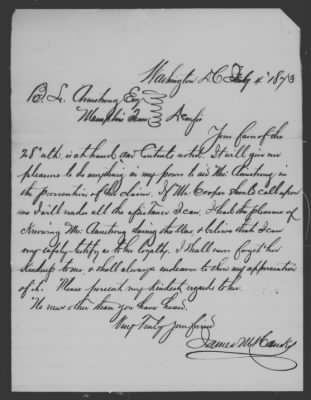 Washington DC Feby 4" 1873
B. L. Armstrong Esq
Memphis Tenn
Your favor of the
28" ulto. is at hand and contents noted. It will give me
pleasure to do anything in my power to aid Mrs Armstrong in
the prosecution of her claim. If Mr Cooper should call upon
me I will render all the assistance I can. I had the pleasure of
knowing Mrs Armstrong during the War & believe that I can
very safely testify as to her loyalty. I shall never forget her
kindness to me & shall always endeavor to show my appreciation
of it. Please present my kindest regards to her.
No news other than you have heard.
Very Truly your friend
James M